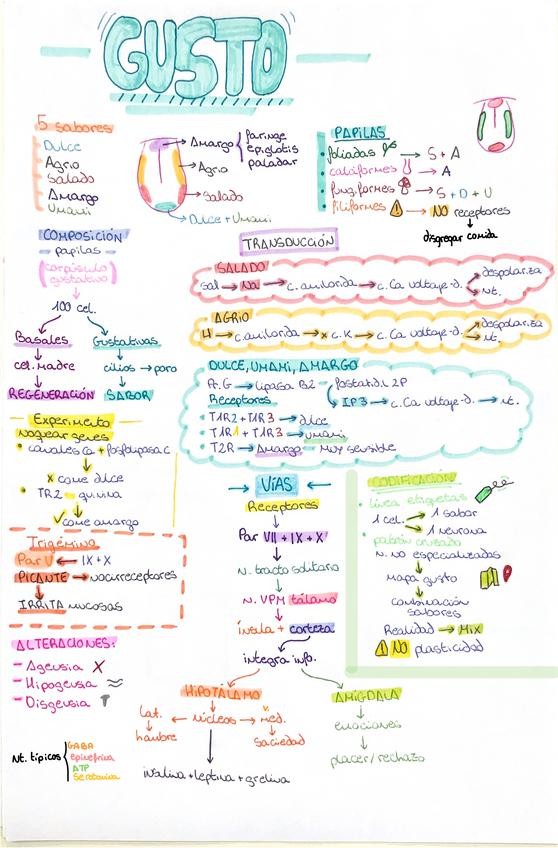 GUSTO
5 sabores
Dulce
Agrio
Salado
Amargo
Umami
Amargo { faringe
epiglotis
paladar
Agrio
Salado
Dulce + Umami
PAPILAS
foliadas → S + A
caliciformes → A
fungiformes → S + D + U
filiformes → NO receptores
↓
disgregar comida
COMPOSICIÓN
papilas
(corpúsculo
gustativo)
↓
100 cel.
Basales Gustativas
cel. madre cilios → poro
REGENERACIÓN SABOR
TRANSDUCCIÓN
SALADO
Sal → Na → c. amilorida → c. Ca voltaje-d. despolariza
nt.
AGRIO
H → c. amilorida → x c. K → c. Ca voltaje-d. despolariza
nt.
DULCE, UMAMI, AMARGO
A.G → lipasa B2 fosfatidil 2P
Receptores IP3 → c. Ca voltaje-d. → nt.
T1R2 + T1R3 → dulce
T1R1 + T1R3 → umami
T2R → Amargo - Muy sensible
Experimento
noquear genes
canales Ca + fosfolipasa C
x come dulce
TR2 - quinina
come amargo
Trigémino
Par V ← IX + X
PICANTE → nocirreceptores
↓
IRRITA mucosas
ALTERACIONES:
- Ageusia X
- Hipogeusia ≈
- Disgeusia
→ VÍAS ←
Receptores
↓
Par VII + IX + X
↓
n. tracto solitario
↓
n. VPM tálamo
↓
ínsula + corteza
integra info.
CODIFICACIÓN
línea etiquetas
1 cel. → 1 sabor
→ 1 neurona
patrón cruzado
n. no especializadas
↓
mapa gusto
↓
combinación
sabores
Realidad → Mix
NO plasticidad
HIPOTÁLAMO AMIGDALA
Lat. ← núcleos → v. med. emociones
hambre saciedad placer/rechazo
insulina + leptina + grelina
Nt. típicos { GABA
epinefrina
ATP
Serotonina